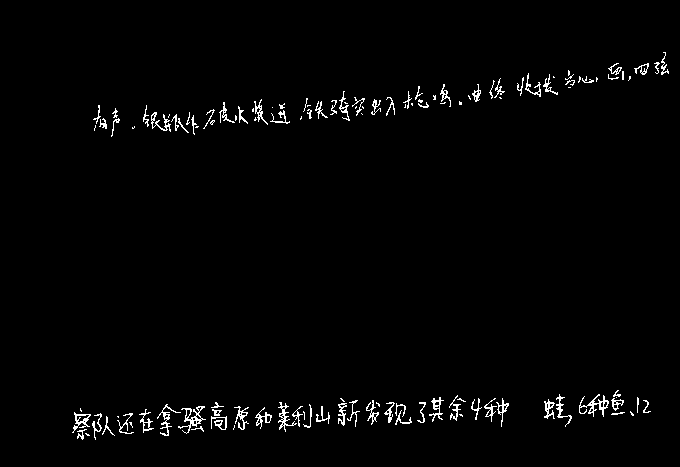 有声。银瓶乍破水浆迸,铁骑突出入枪鸣。曲终收拨当心画,四弦
察队还在拿骚高原和莱利山新发现了其余4种 蛙,6种鱼、12